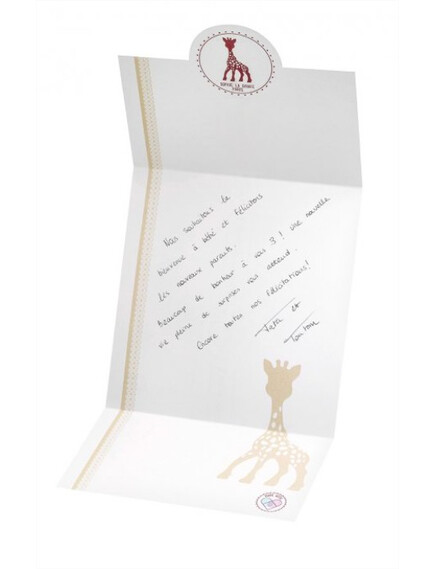 SOPHIE LA GIRAFE
PARIS
Nous souhaitons la
bienvenue à bébé et félicitons
les nouveaux parents.
beaucoup de bonheur à vous 3 ! Une nouvelle
vie pleine de surprises vous attend.
Encore toutes nos félicitations !
et